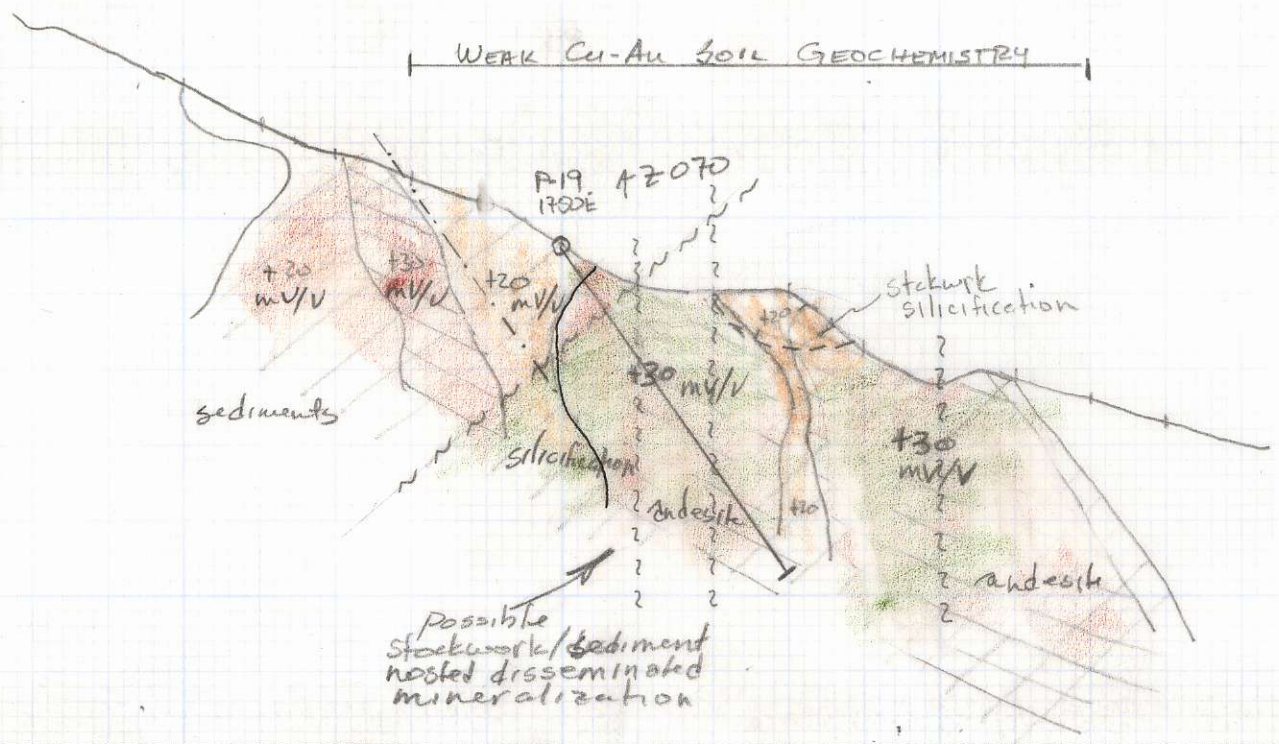 WEAK Cu-Au SOIL GEOCHEMISTRY
P-19
1750E
AZ 070
+20
mV/V
+30
mV/V
+20
mV/V
+20
stckwrk
silicification
+30 mV/V
+30
mV/V
sediments
silicification
andesite
+20
andesite
possible
stockwork/sediment
hosted disseminated
mineralization